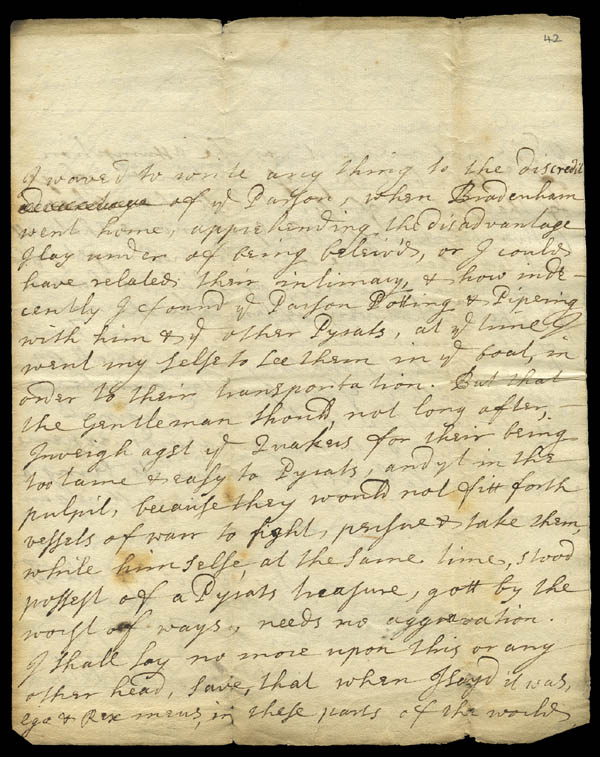 42
I waved to write any thing to the discredit
of yᵉ Parson, when Bradenham
went home, apprehending the disadvantage
I lay under of being beleiv'd, or I could
have related their intimacy, & how inde-
cently I found yᵉ Parson Potting & Pipeing
with him & yᵉ other Pyrats, at yᵉ time I
went my selfe to see them in yᵉ Goal, in
order to their transportation. But that
the Gentleman should not long after,
Inveigh agst yᵉ Quakers for their being
too tame & easy to Pyrats, and yt in the
pulpit, because they would not fitt forth
vessels of warr to fight, persue & take them,
while himselfe at the same time, stood
possest of a Pyrats treasure, gott by the
worst of ways, needs no aggravation.
I shall say no more upon this or any
other head, save, that when I sayd it was,
ego & Rex meus, in these parts of the world